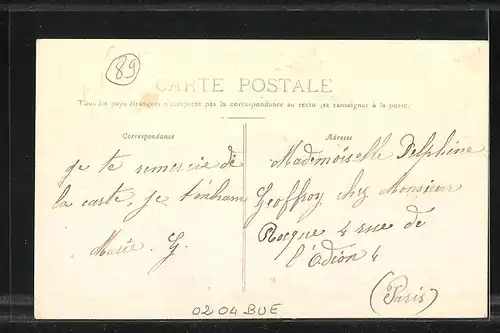 89
CARTE POSTALE
Tous les pays étrangers n'acceptent pas la correspondance au recto (se renseigner à la poste)
Correspondance
Adresse
je te remercie de
la carte, je t'embrasse
Marie. G.
Mademoiselle Delphine
Geoffroy chez Monsieur
Rocque 4 rue de
l'Odéon 4
(Paris)
02 04 BUE